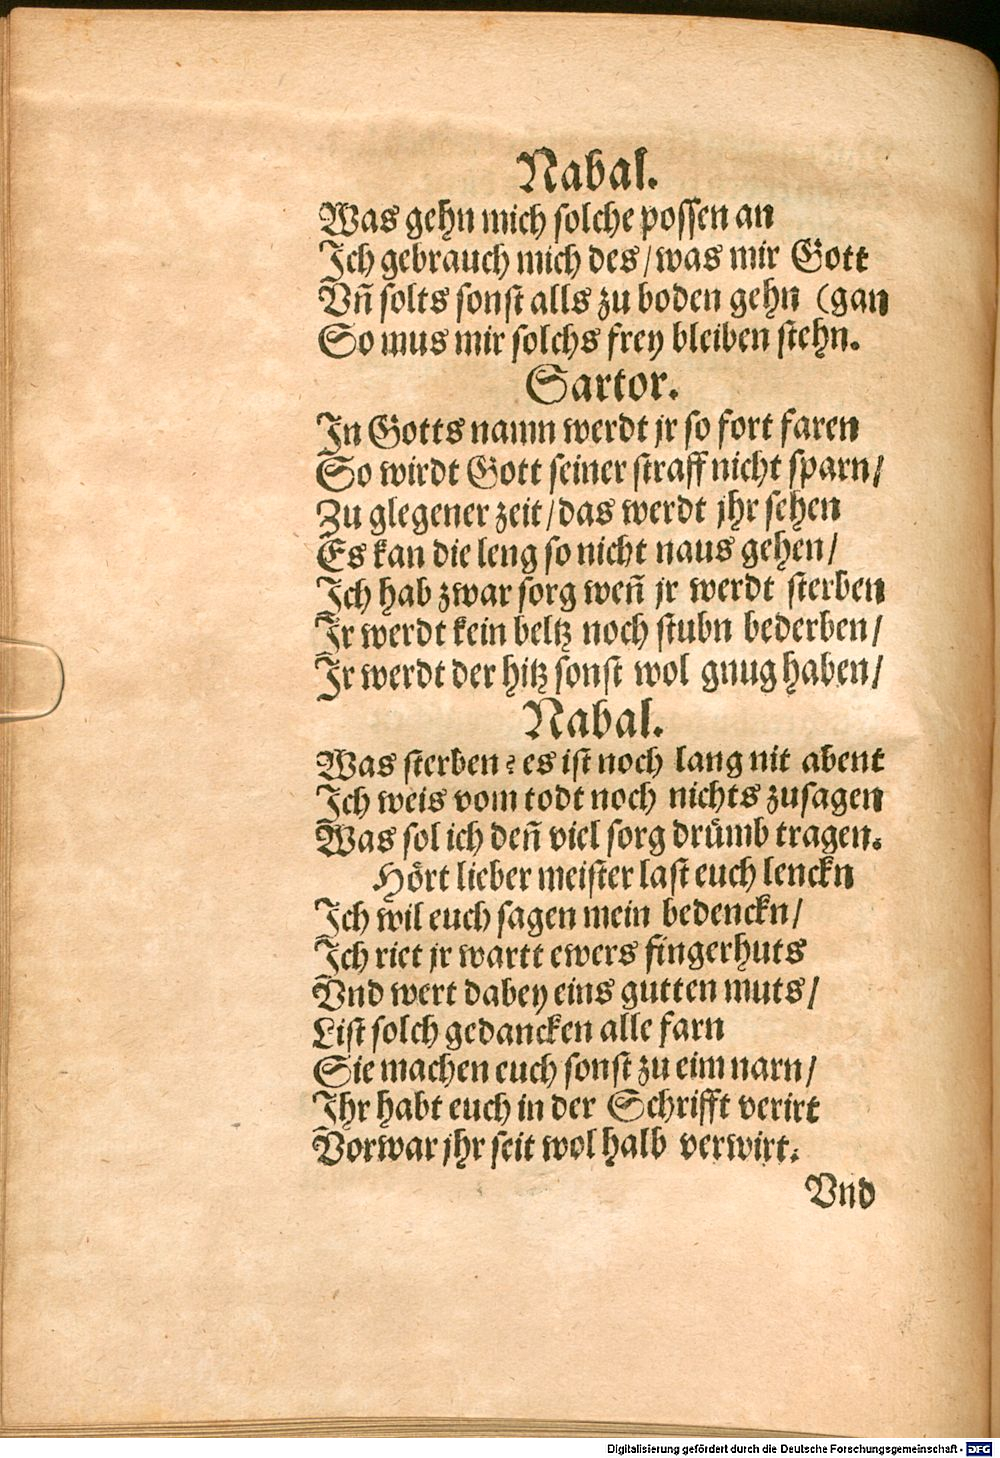 Nabal.
Was gehn mich solche possen an
Ich gebrauch mich des/was mir Gott
Vñ solts sonst alls zu boden gehn (gan
So mus mir solchs frey bleiben stehn.
Sartor.
In Gotts namn werdt jr so fort faren
So wirdt Gott seiner straff nicht sparn/
Zu glegener zeit/das werdt jhr sehen
Es kan die leng so nicht naus gehen/
Ich hab zwar sorg weñ jr werdt sterben
Ir werdt kein beltz noch stubn bederben/
Ir werdt der hitz sonst wol gnug haben/
Nabal.
Was sterben? es ist noch lang nit abent
Ich weis vom todt noch nichts zusagen
Was sol ich deñ viel sorg drümb tragen.
Hört lieber meister last euch lenckn
Ich wil euch sagen mein bedenckn/
Ich riet jr wartt ewers fingerhuts
Vnd wert dabey eins gutten muts/
List solch gedancken alle farn
Sie machen euch sonst zu eim narn/
Ihr habt euch in der Schrifft verirt
Vorwar jhr seit wol halb verwirt.
Vnd
Digitalisierung gefördert durch die Deutsche Forschungsgemeinschaft - DFG